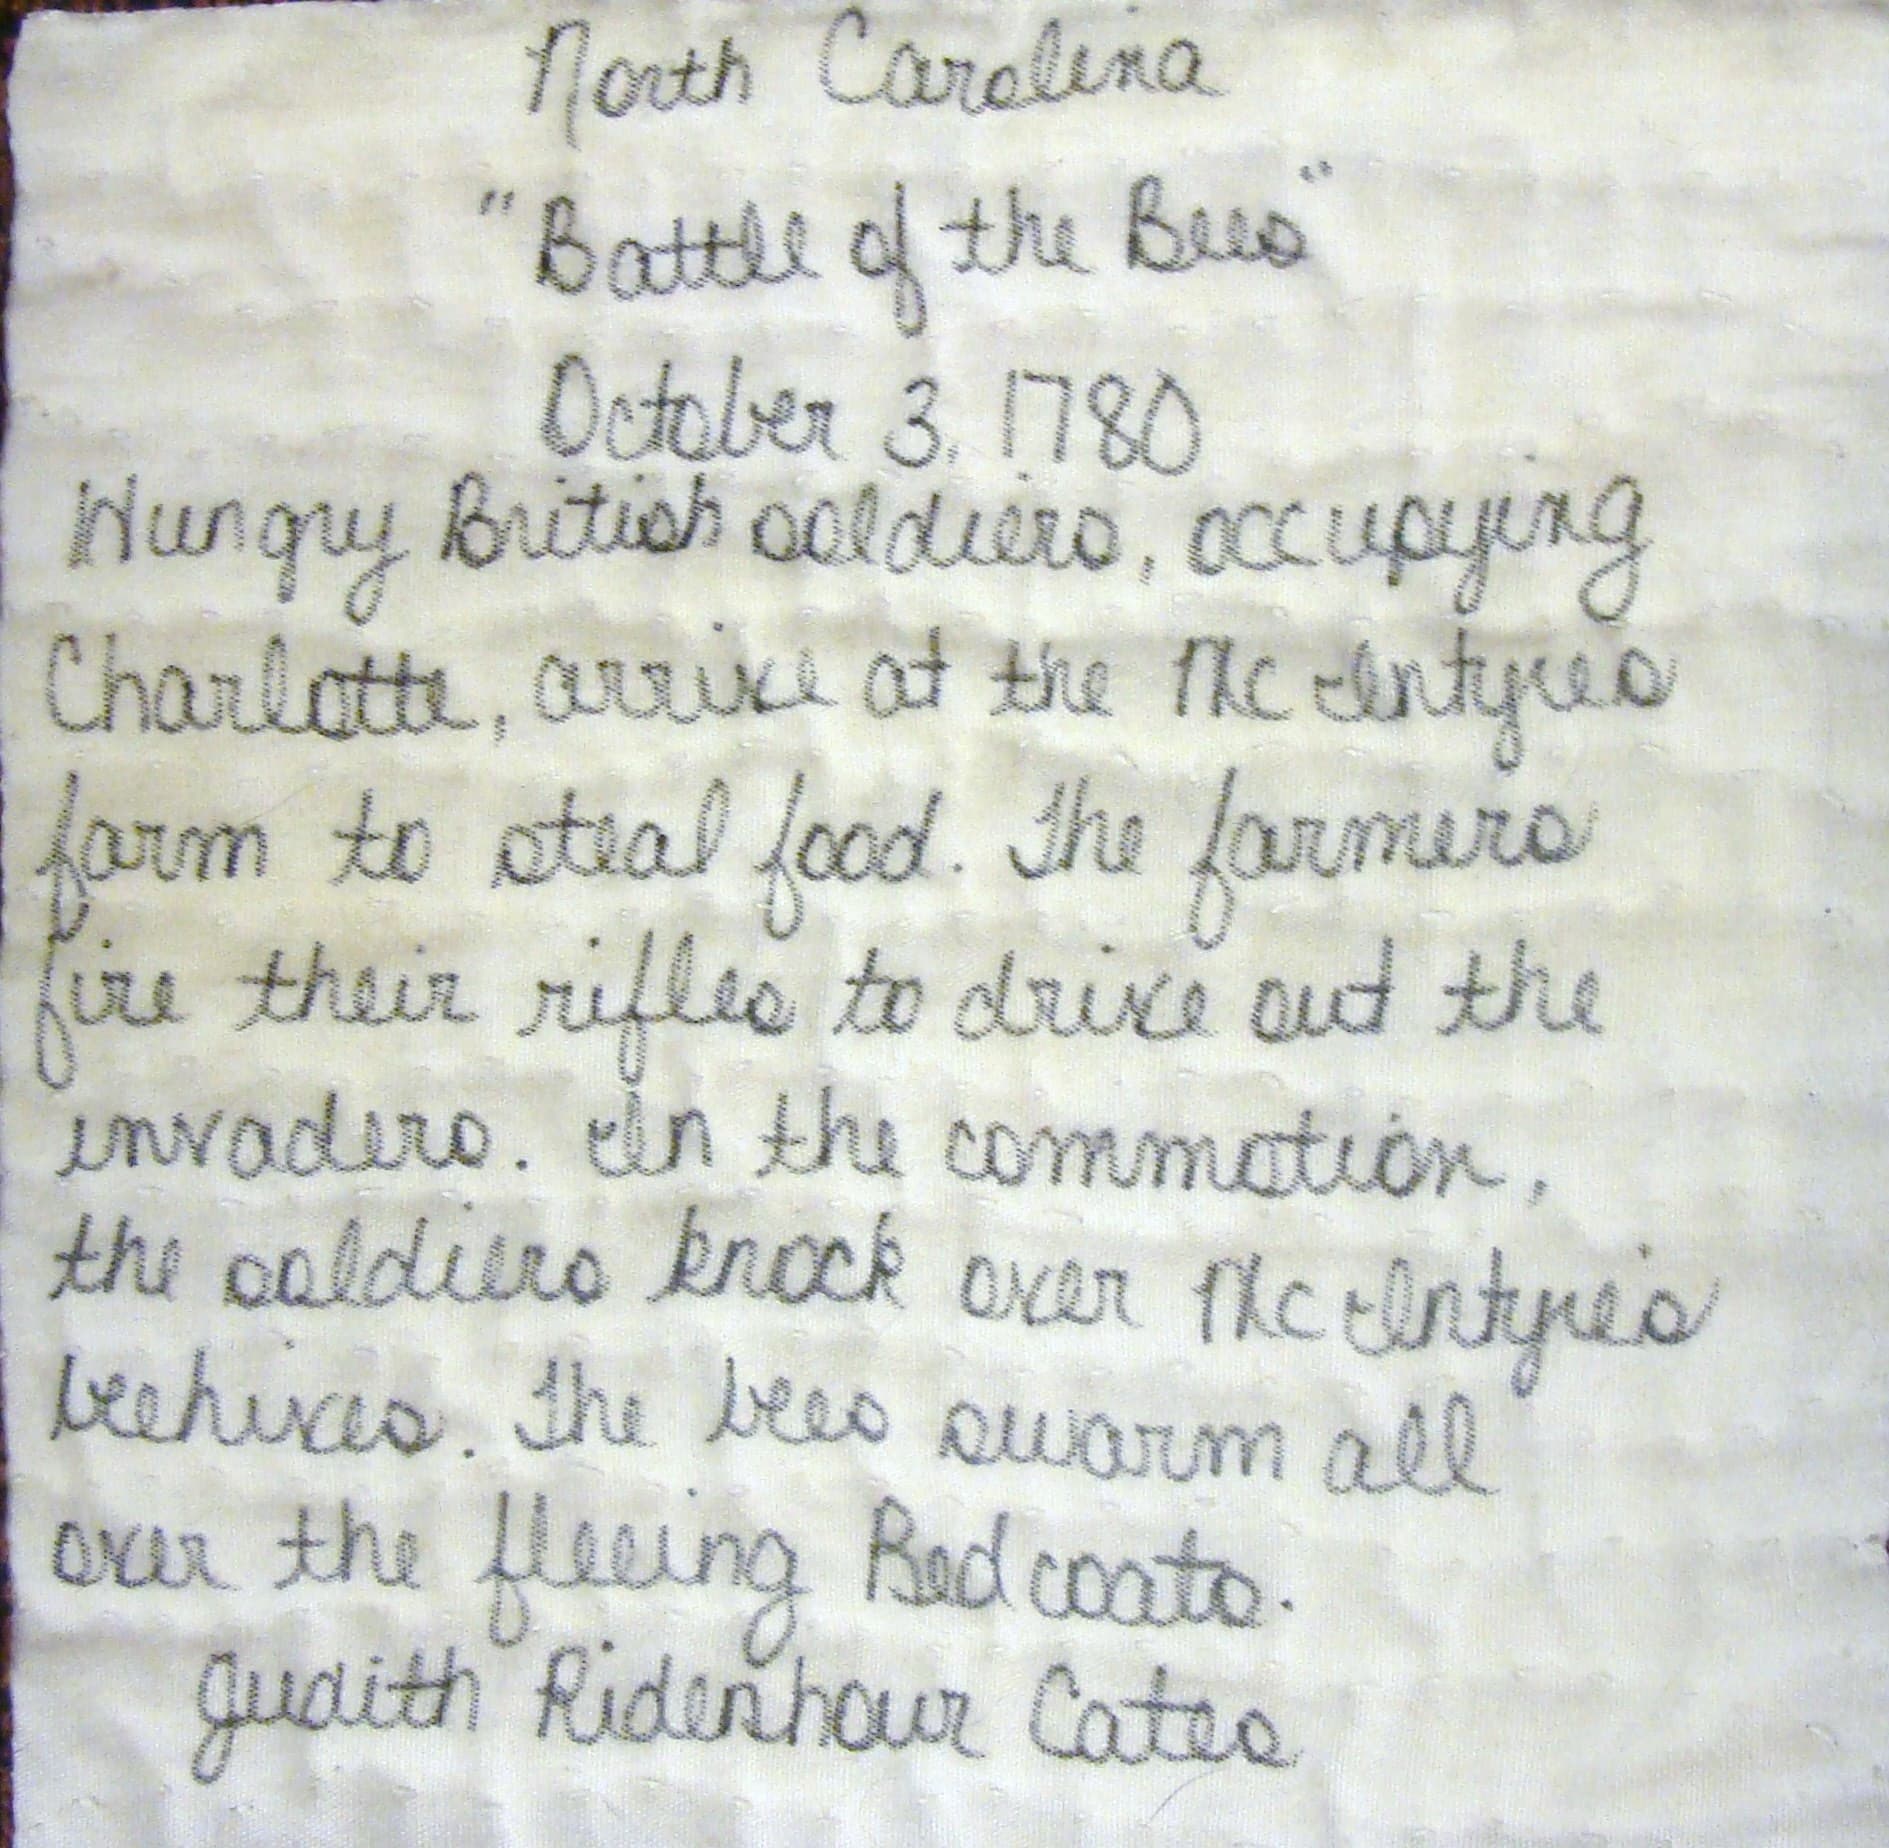 North Carolina
"Battle of the Bees"
October 3, 1780
Hungry British soldiers, occupying
Charlotte, arrive at the McIntyres
farm to steal food. The farmers
fire their rifles to drive out the
invaders. In the commotion,
the soldiers knock over McIntyre's
beehives. The bees swarm all
over the fleeing Redcoats.
Judith Ridenhour Cates